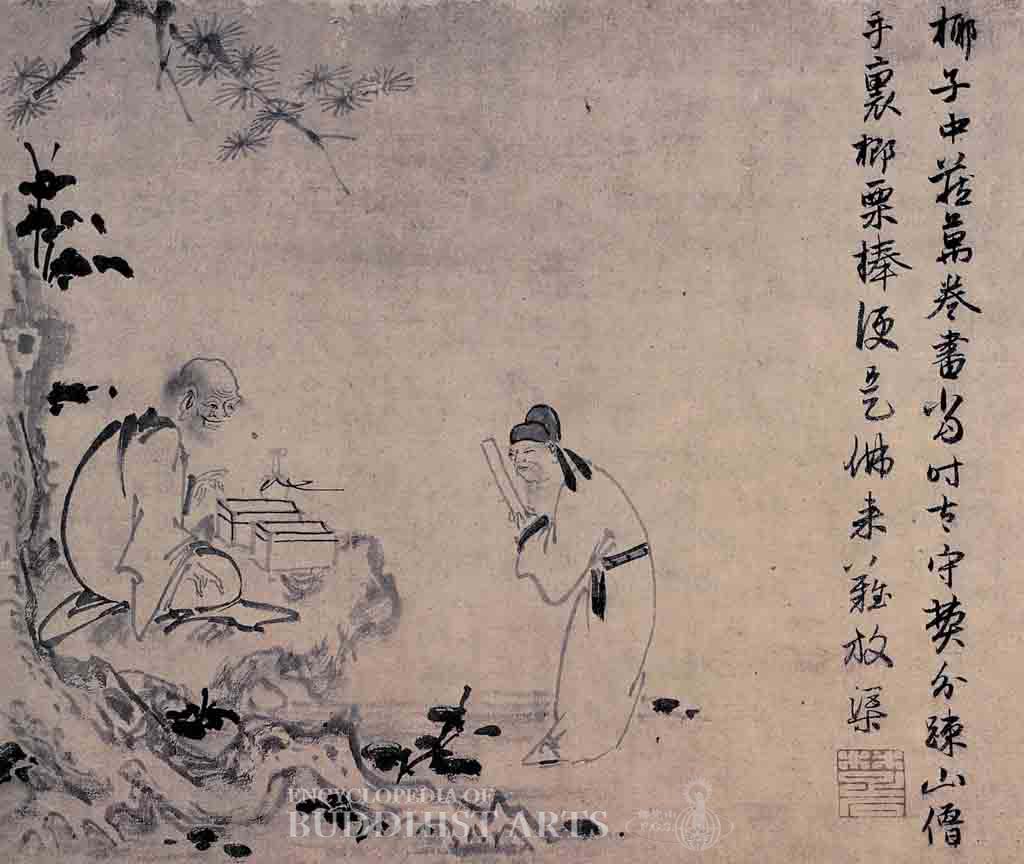 椰子中藏萬卷書當时太守費分疎山僧
手裏楖栗棒便是佛来難放渠
ENCYCLOPEDIA OF
BUDDHIST ARTS